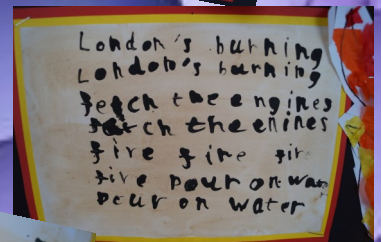 London's burning
London's burning
fetch the engines
fetch the enines
fire fire fir
fire pour on wa
pour on water